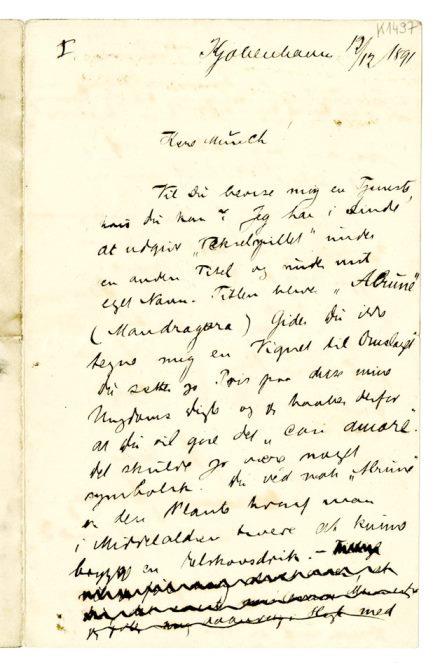 K1497
I.
Kjøbenhavn 12/12 1891
Kære Munch!
Vil Du bevise mig en Tjeneste,
hvis du kan? Jeg har i Sinde
at udgive " " under
en anden Titel og under mit
eget Navn. Titlen bliver „Alrune"
(Mandragora) Gider Du ikke
tegne mig en Vignet til Omslaget
Du sætter jo Pris paa disse mine
Ungdoms digte og jeg haaber derfor
at du vil gøre det „con amore".
det skulde jo være noget
symbolsk. Du véd nok „Alrune"
er den Plante hvoraf man
i Middelalderen troede at kunne
brygge en Elskovsdrik. –
med